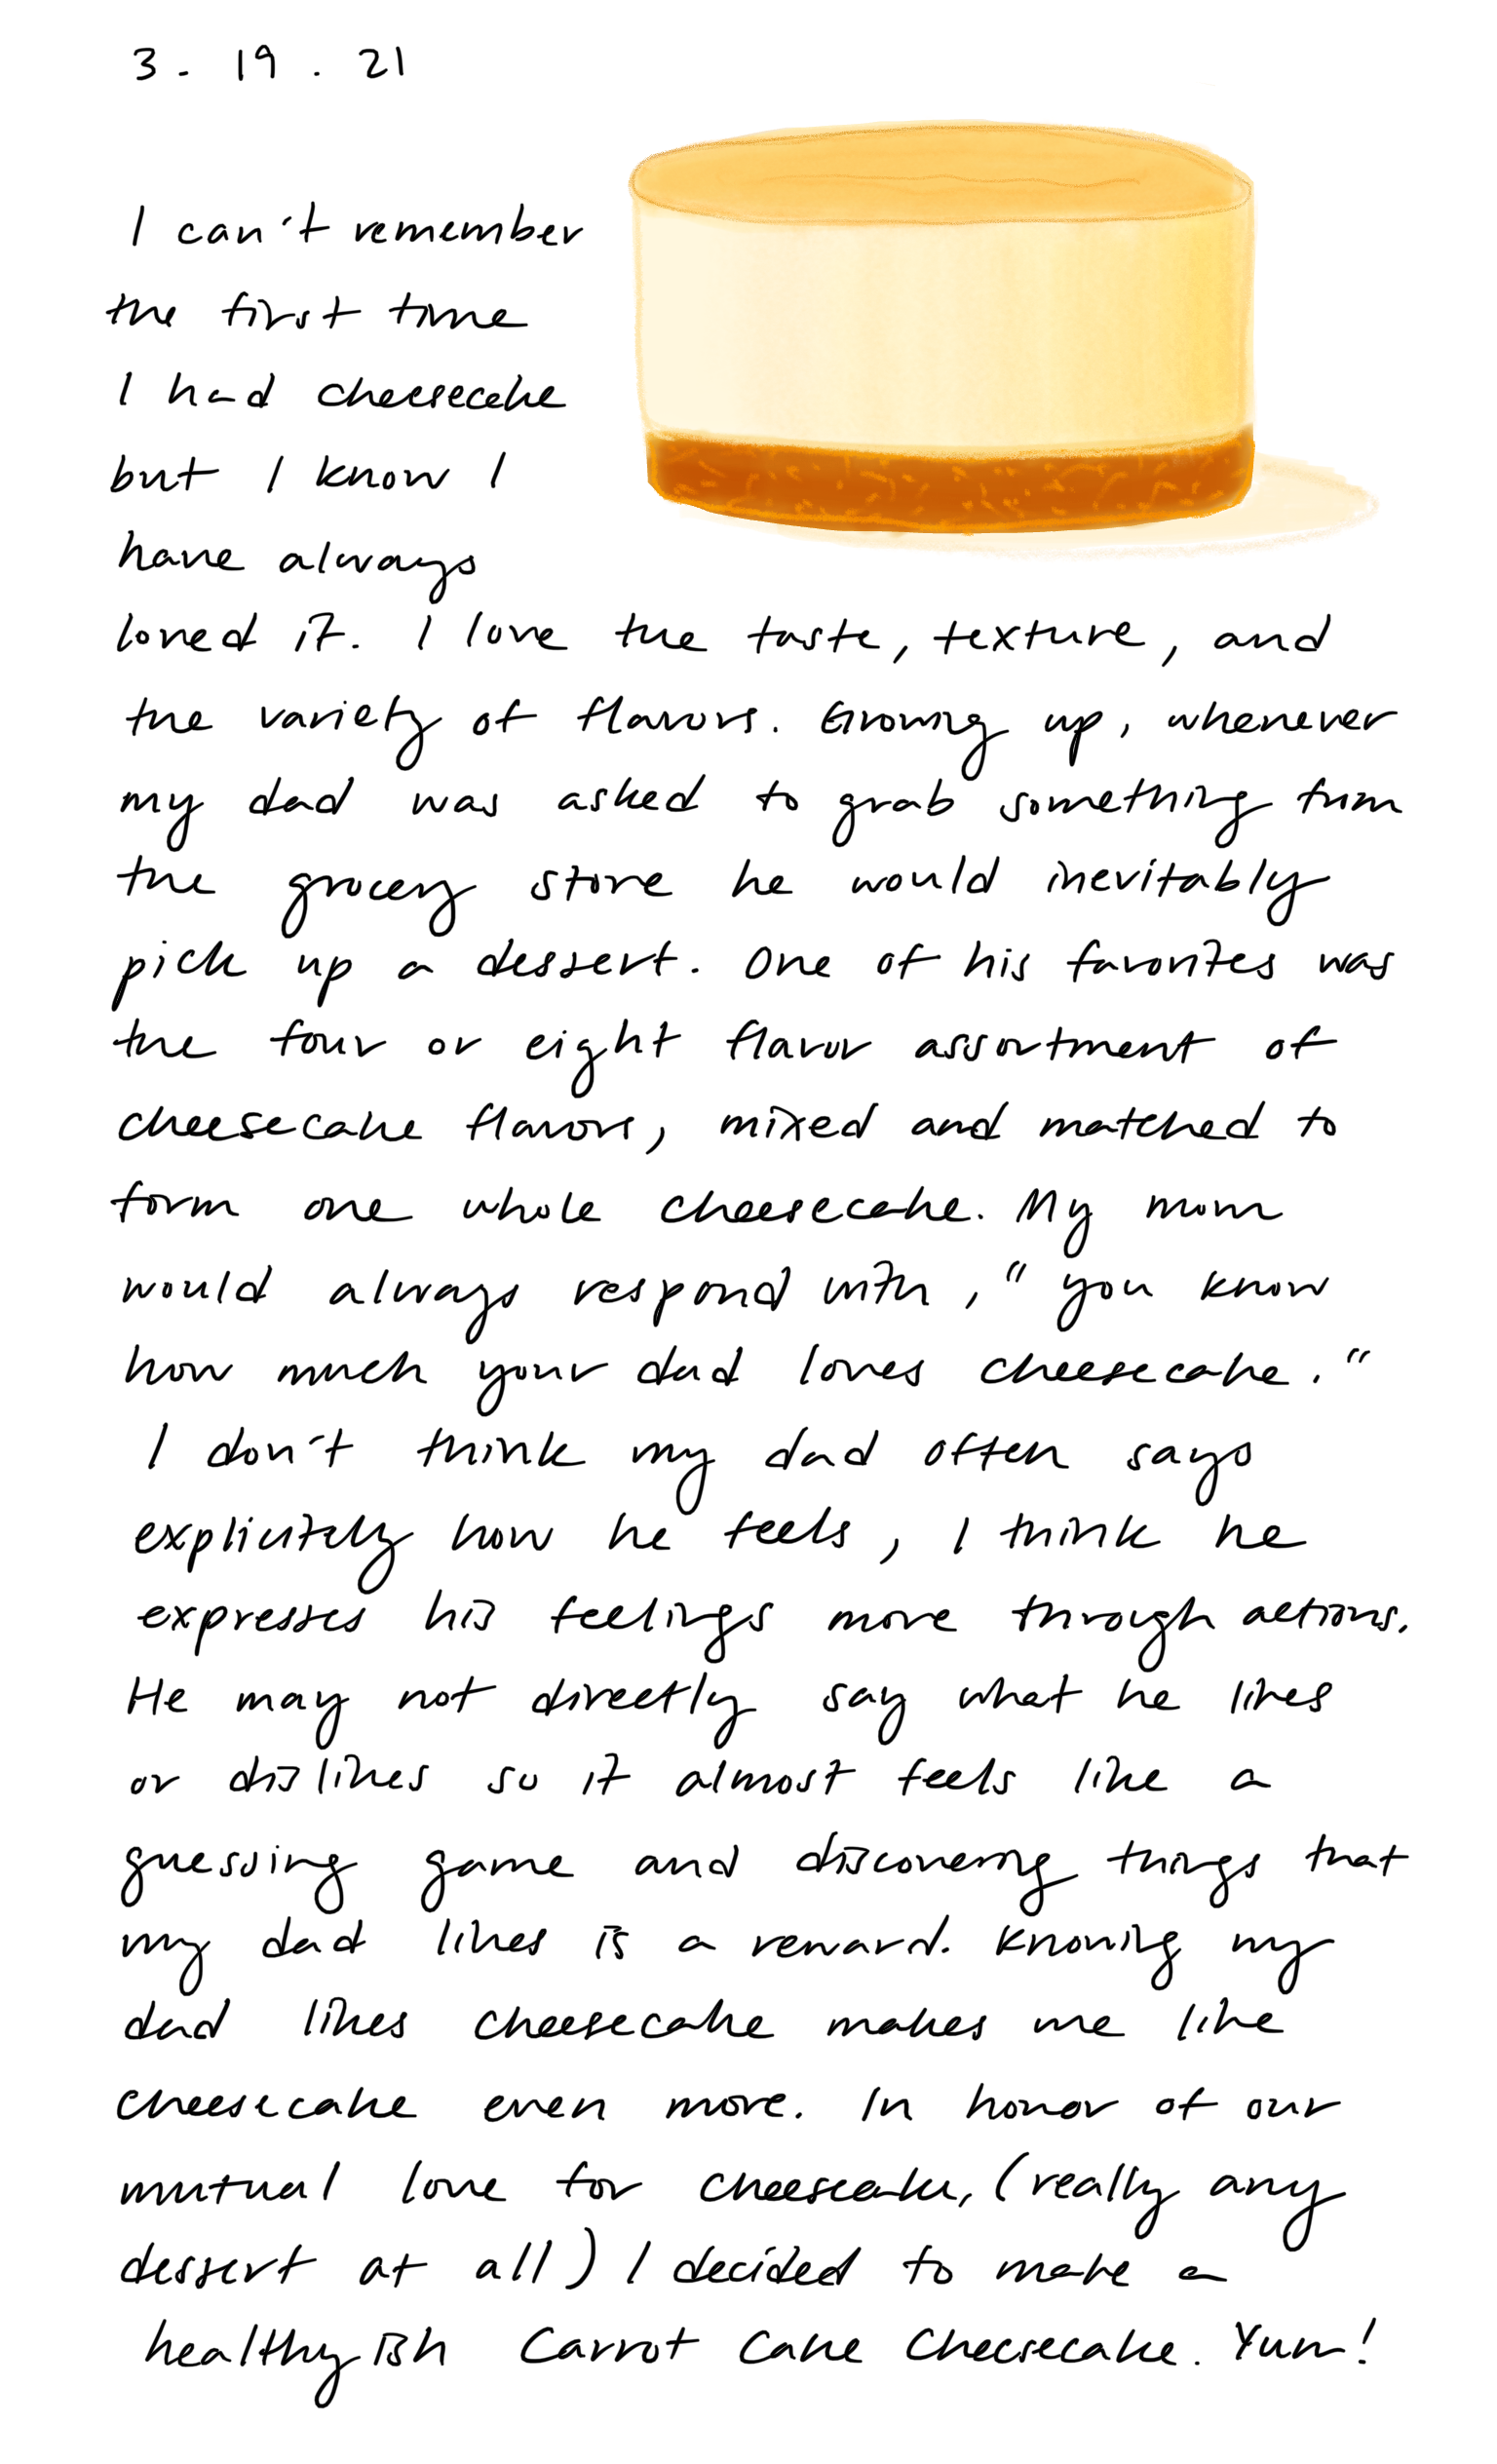 3.19.21
I can't remember
the first time
I had cheesecake
but I know I
have always
loved it. I love the taste, texture, and
the variety of flavors. Growing up, whenever
my dad was asked to grab something from
the grocery store he would inevitably
pick up a dessert. One of his favorites was
the four or eight flavor assortment of
cheesecake flavors, mixed and matched to
form one whole cheesecake. My mom
would always respond with, "you know
how much your dad loves cheesecake."
I don't think my dad often says
explicitely how he feels, I think he
expresses his feelings more through actions.
He may not directly say what he likes
or dislikes so it almost feels like a
guessing game and discovering things that
my dad likes is a reward. Knowing my
dad likes cheesecake makes me like
cheesecake even more. In honor of our
mutual love for cheesecake, (really any
dessert at all) I decided to make a
healthyish Carrot Cake Cheesecake. Yum!